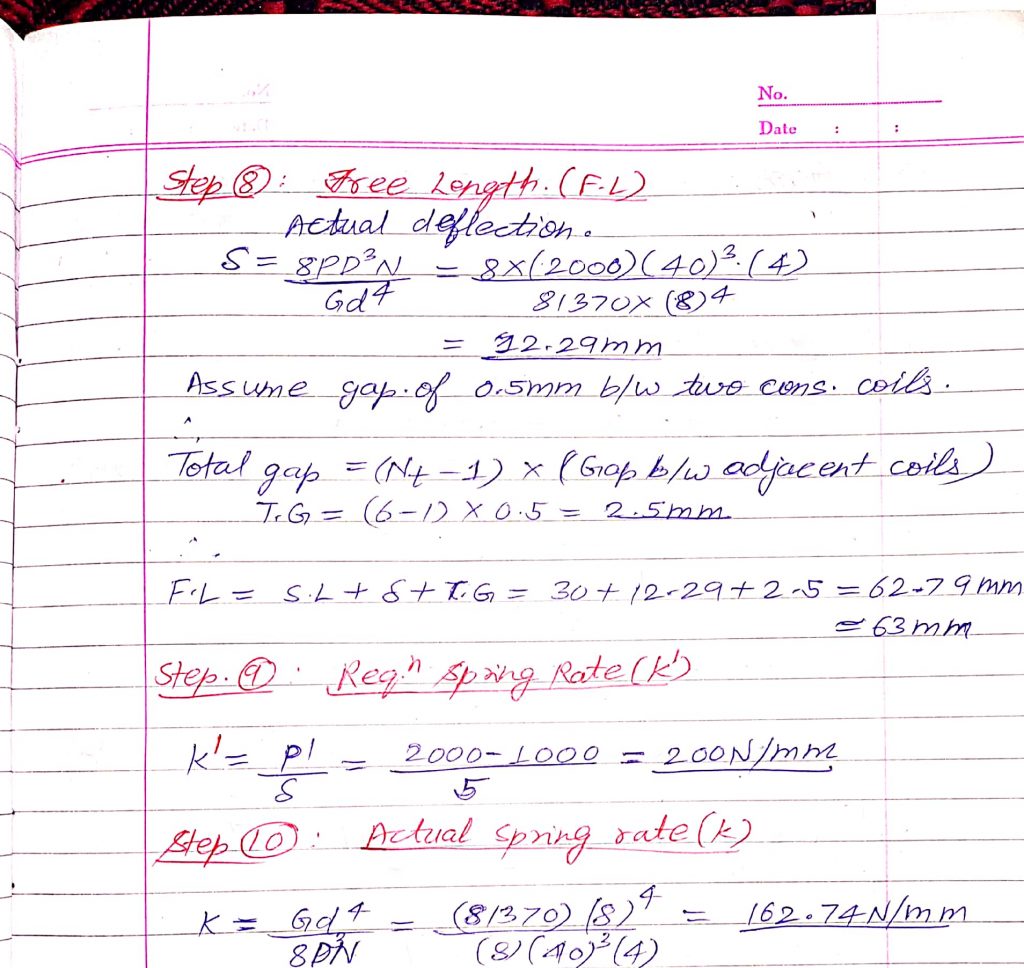 No.
Date : :
Step ⑧: Free Length. (F.L)
Actual deflection.
S = 8PD³N / Gd⁴ = 8×(2000)(40)³.(4) / 81370×(8)⁴
= 12.29mm
Assume gap. of 0.5mm b/w two cons. coils.
∴
Total gap = (Nt - 1) × (Gap b/w adjacent coils)
T.G = (6-1) × 0.5 = 2.5mm
∴
F.L = S.L + δ + T.G = 30 + 12.29 + 2.5 = 62.79 mm
= 63 mm
Step. ⑨: Reqⁿ Spring Rate (k')
k' = P' / δ = 2000-1000 / 5 = 200N/mm
Step ⑩: Actual spring rate (k)
K = Gd⁴ / 8D³N = (81370) (8)⁴ / (8) (40)³ (4) = 162.74 N/mm